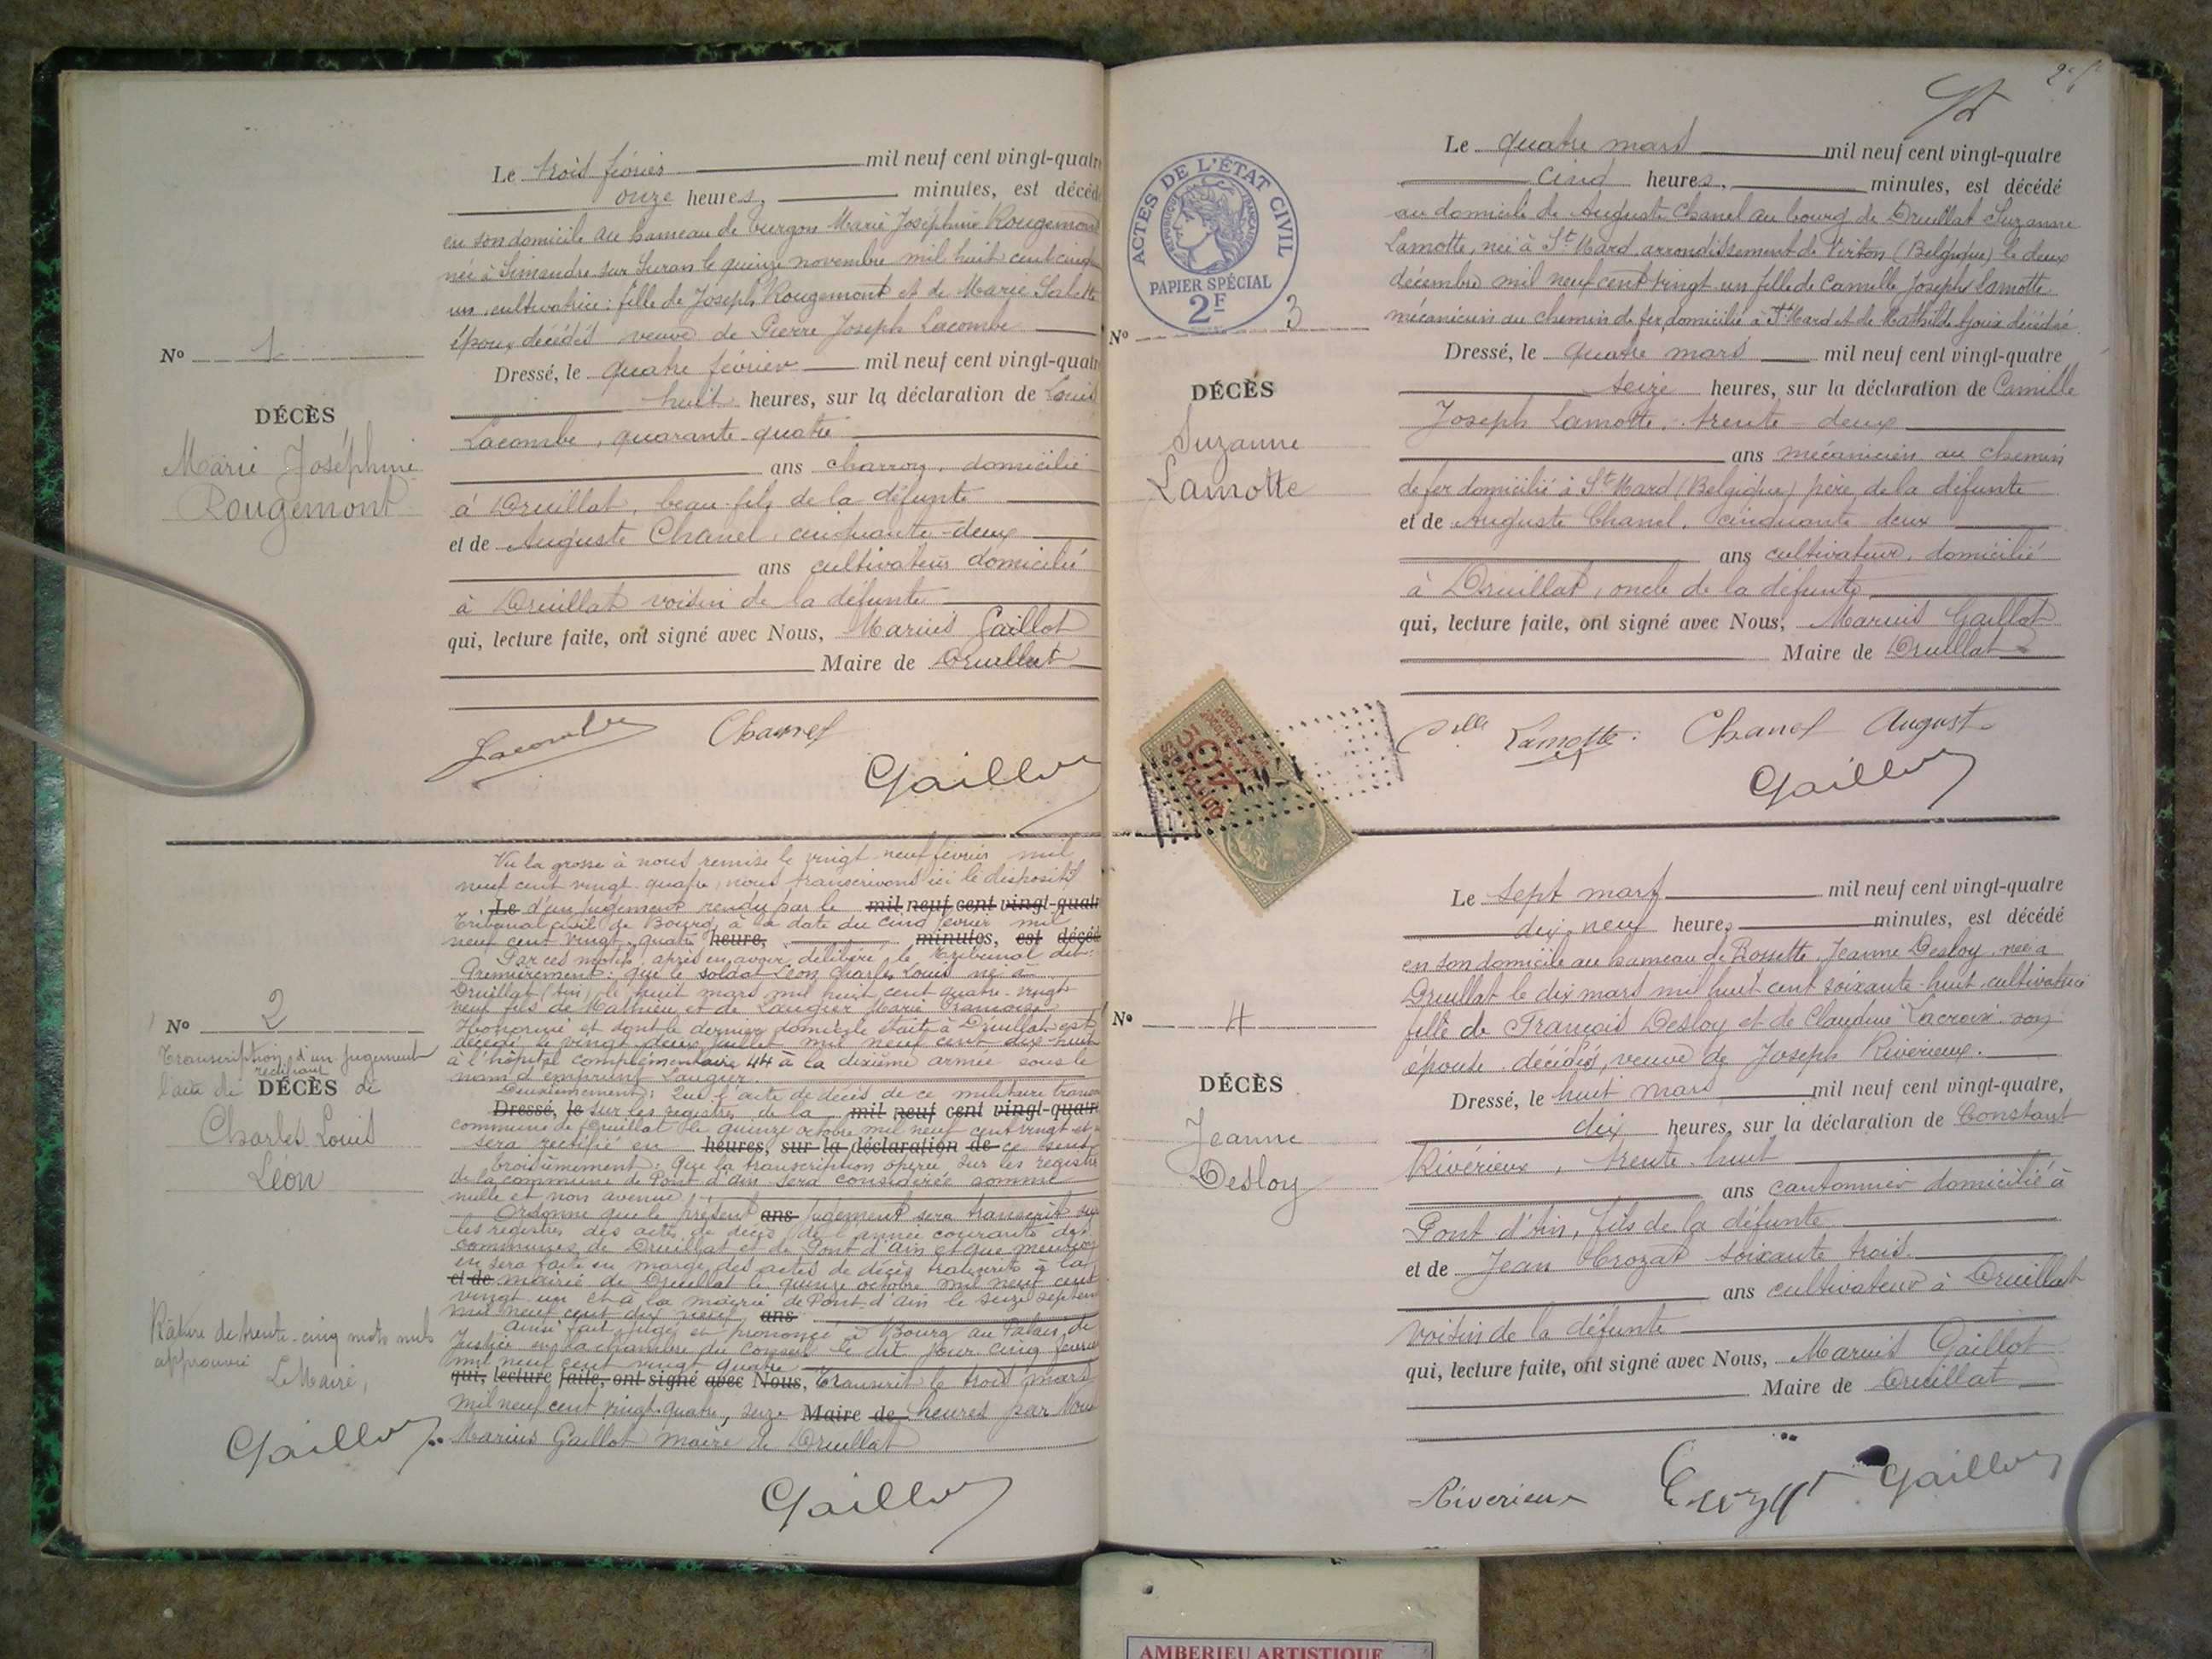 Le trois février mil neuf cent vingt-quatre
onze heures, minutes, est décédé
en son domicile au hameau de Turgon Marie Joséphine Rougemont
née à Simandre sur Suran le quinze novembre mil huit cent cinquante
un, cultivatrice : fille de Joseph Rougemont et de Marie
époux décédés veuve de Pierre Joseph Lacombe
Nº 1
Dressé, le quatre février mil neuf cent vingt-quatre
huit heures, sur la déclaration de Louis
DÉCÈS
Lacombe, quarante-quatre
Marie Joséphine
ans charron, domicilié
Rougemont
à Druillat, beau-fils de la défunte
et de Auguste Chanel, cinquante-deux
ans cultivateur domicilié
à Druillat voisin de la défunte
qui, lecture faite, ont signé avec Nous, Marius Gaillot
Maire de Druillat
Lacombe Chanel
Gaillot
Vu la grosse à nous remise le vingt-neuf février mil
neuf cent vingt-quatre, nous transcrivons ici le dispositif
Le d'un jugement rendu par le mil neuf cent vingt-quatre
Tribunal civil de Bourg à la date du cinq février mil
neuf cent vingt-quatre heure, minutes, est décédé
Par ces motifs, après en avoir délibéré, le Tribunal dit :
Premièrement : que le soldat Léon Charles Louis né à
Druillat (Ain) le huit mars mil huit cent quatre-vingt
neuf fils de Mathieu et de Laugier Marie Françoise
Honorine et dont le dernier domicile était à Druillat est
décédé le vingt deux juillet mil neuf cent dix-huit
à l'hôpital complémentaire 44 à la dixième armée sous le
nom d'emprunt Laugier.
Nº 2
Transcription d'un jugement
rectifiant
l'acte de DÉCÈS de
Charles Louis
Léon
Deuxièmement : Que l'acte de décès de ce militaire transcrit
Dressé, le sur les registres de la mil neuf cent vingt-quatre
commune de Druillat le quinze octobre mil neuf cent vingt et un
sera rectifié en heures, sur la déclaration de ce sens
Troisièmement : Que la transcription opérée sur les registres
de la commune de Pont d'Ain sera considérée comme
nulle et non avenue
Ordonne que le présent ans jugement sera transcrit sur
les registres des actes de décès de l'année courante des
communes de Druillat et de Pont d'Ain et que mention
en sera faite en marge des actes de décès transcrits à la
et de mairie de Druillat le quinze octobre mil neuf cent
vingt un et à la mairie de Pont d'Ain le seize septembre
mil neuf cent dix neuf ans
Ainsi fait jugé et prononcé à Bourg au Palais de
Justice en la chambre du Conseil le dit jour cinq février
mil neuf cent vingt quatre
qui, lecture faite, ont signé avec Nous, Transcrit le trois mars
mil neuf cent vingt-quatre, seize Maire de heures par Nous
Marius Gaillot maire de Druillat
Rature de trente-cinq mots nuls
approuvée
Le Maire,
Gaillot
Gaillot
ACTES DE L'ÉTAT CIVIL
RÉPUBLIQUE FRANÇAISE
PAPIER SPÉCIAL
2F
Le quatre mars mil neuf cent vingt-quatre
cinq heures, minutes, est décédé
au domicile de Auguste Chanel au bourg de Druillat Suzanne
Lamotte, née à St Mard, arrondissement de Virton (Belgique) le deux
décembre mil neuf cent vingt-un fille de Camille Joseph Lamotte
mécanicien au chemin de fer, domicilié à St Mard et de Mathilde décédée.
Nº 3
Dressé, le quatre mars mil neuf cent vingt-quatre
seize heures, sur la déclaration de Camille
DÉCÈS
Suzanne
Lamotte
Joseph Lamotte, trente-deux
ans mécanicien au chemin
de fer domicilié à St Mard (Belgique) père de la défunte
et de Auguste Chanel, cinquante deux
ans cultivateur, domicilié
à Druillat, oncle de la défunte
qui, lecture faite, ont signé avec Nous, Marius Gaillot
Maire de Druillat
Lamotte Chanel August
Gaillot
Le sept mars mil neuf cent vingt-quatre
dix-neuf heures minutes, est décédé
en son domicile au hameau de Rossette, Jeanne Desloy, née à
Druillat le dix mars mil huit cent soixante-huit, cultivatrice
fille de François Desloy et de Claudine Lacroix son
épouse, décédés, veuve de Joseph Rivérieux.
Nº 4
Dressé, le huit mars mil neuf cent vingt-quatre,
dix heures, sur la déclaration de Constant
DÉCÈS
Jeanne
Desloy
Rivérieux, trente-huit
ans cantonnier domicilié à
Pont d'Ain, fils de la défunte
et de Jean Crozat soixante trois
ans cultivateur à Druillat
voisin de la défunte
qui, lecture faite, ont signé avec Nous, Marius Gaillot
Maire de Druillat
Riverieux Crozat Gaillot
AMBERIEU ARTISTIQUE